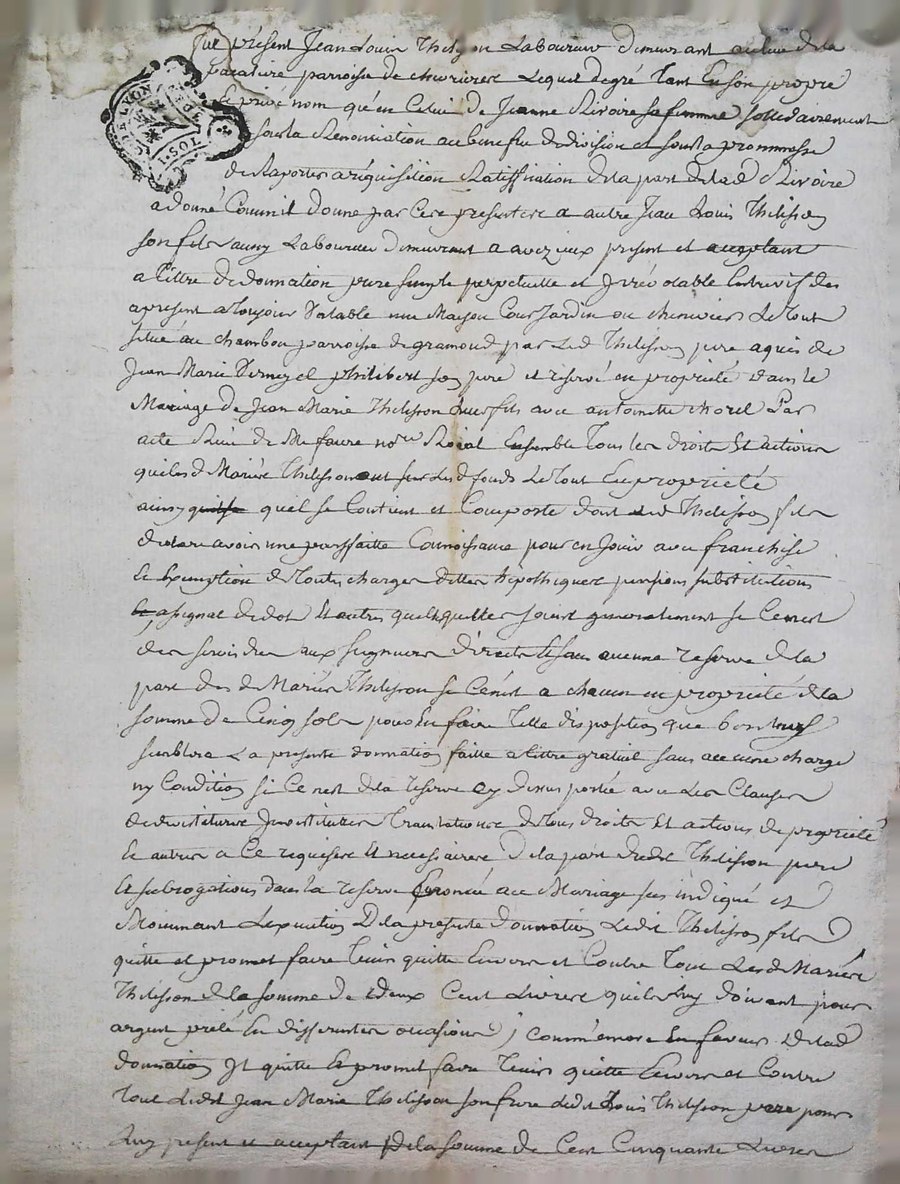 fut présent Jean Louis Thelisson Laboureur demeurant au lieu de la
paroisse de chevrieres Lequel degré tant En son propre
Et privé nom qu'en Celui de Jeanne Rivoire sa femme sollidairement
sous la Renonciation au benefice de division et sous la prommesse
de Raporter a réquisition Ratiffication de la part de lad Rivoire
a donné Comm'il donne par Ces presentes a autre Jean Louis Thelisson
son fils aussy Laboureur demeurant a aveizieux present et acceptant
a tittre de donnation pure simple perpetuelle et Irrévocable Entre vif des
a present a toujours Valable une Maison Cour Jardin ou chenevier Le tout
situé au chambon parroisse de gramond par Led Thelisson pere aquis de
Jean Marie et philibert son pere et reservé en propriété dans le
Mariage de Jean Marie Thelisson Leur fils avec antoinette chorel Par
acte Reçu de Me faure nore Roial Ensemble Tous les droits Et actions
que lesd Mariés Thelisson ont sur Lesd fonds Le tout En propriété
ainsy quil se Contient et Comporte dont led Thelisson fils
declare avoir une parffaitte Connoissance pour en Jouir avec franchise
Et Exemption de Toutes charges dettes hipothiques pensions substitutions
assignat de dot Et autres quelsquelles soient generalement si Ce n'est
des servis dus aux seigneurs directs Et sans aucune reserve de la
part des d Mariés Thelisson si Ce n'est a chacun en propriété de la
somme de Cinq sols pour En faire Telle disposition que bon leurs
semblera La presente donnation faitte a titre gratuit sans aucune charge
ny Condition si Ce n'est de la reserve Cy dessus portée avec Les Clauses
de devestiture Investiture Translation de tous droits Et actions de propriété
Et autres a Ce requises Et necessaires de la part dudit Thelisson pere
Et subrogations dans la reserve énoncée au Mariage sus indiqué et
Moiennant L'exécution De la presente Donnation Ledit Thelisson fils
quitte et promet faire Tenir quitte Envers et Contre Tous Lesd Mariés
Thelisson de la somme de deux Cent Livres quils luy doivent pour
argent prêté En differentes occasions, Comm'encore En faveur De lad
donnation Il quitte Et promet faire Tenir quitte Envers et Contre
Tous Ledit Jean Marie Thelisson son frere Ledit Louis Thelisson pere pour
Luy present et acceptant De la somme de Cent Cinquante Livres
G. DE LYON
1. SOL